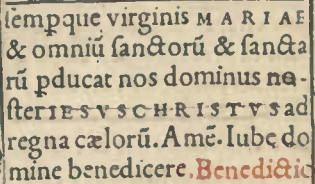 ſempque virginis MARIAE
& omniū ſanctorū & ſancta
rū pducat nos dominus no-
ſter IESVS CHRISTVS ad
regna cælorū. Amē. Iube do
mine benedicere. Benedictio